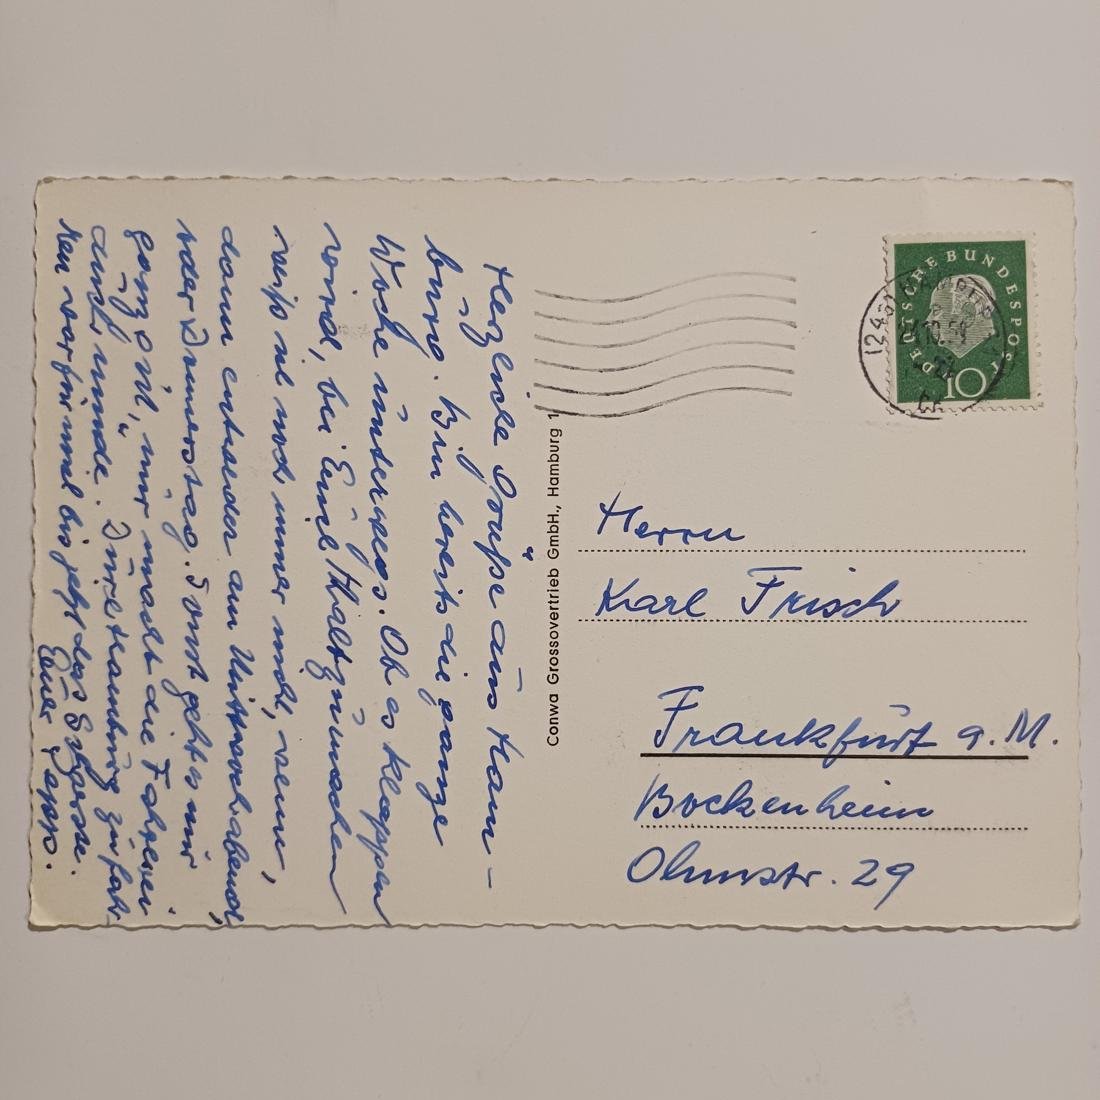 Herzliche Grüße aus Ham-
burg. Bin bereits die ganze
Woche unterwegs. Ob es klappen
wird, bei Euch Halt zu machen
weiß ich noch immer nicht, wenn,
dann entweder am Mittwochabend,
oder Donnerstag. Sonst geht's mir
ganz gut, nur macht die Fahrerei
auch müde. Durch Hamburg zu fah-
ren war für mich bis jetzt das Grösste.
Euer Seppo.
Conwa Grossovertrieb GmbH., Hamburg 1
DEUTSCHE BUNDESPOST
10
(24a)
Herrn
Karl Frisch
Frankfurt a. M.
Bockenheim
Ohmstr. 29